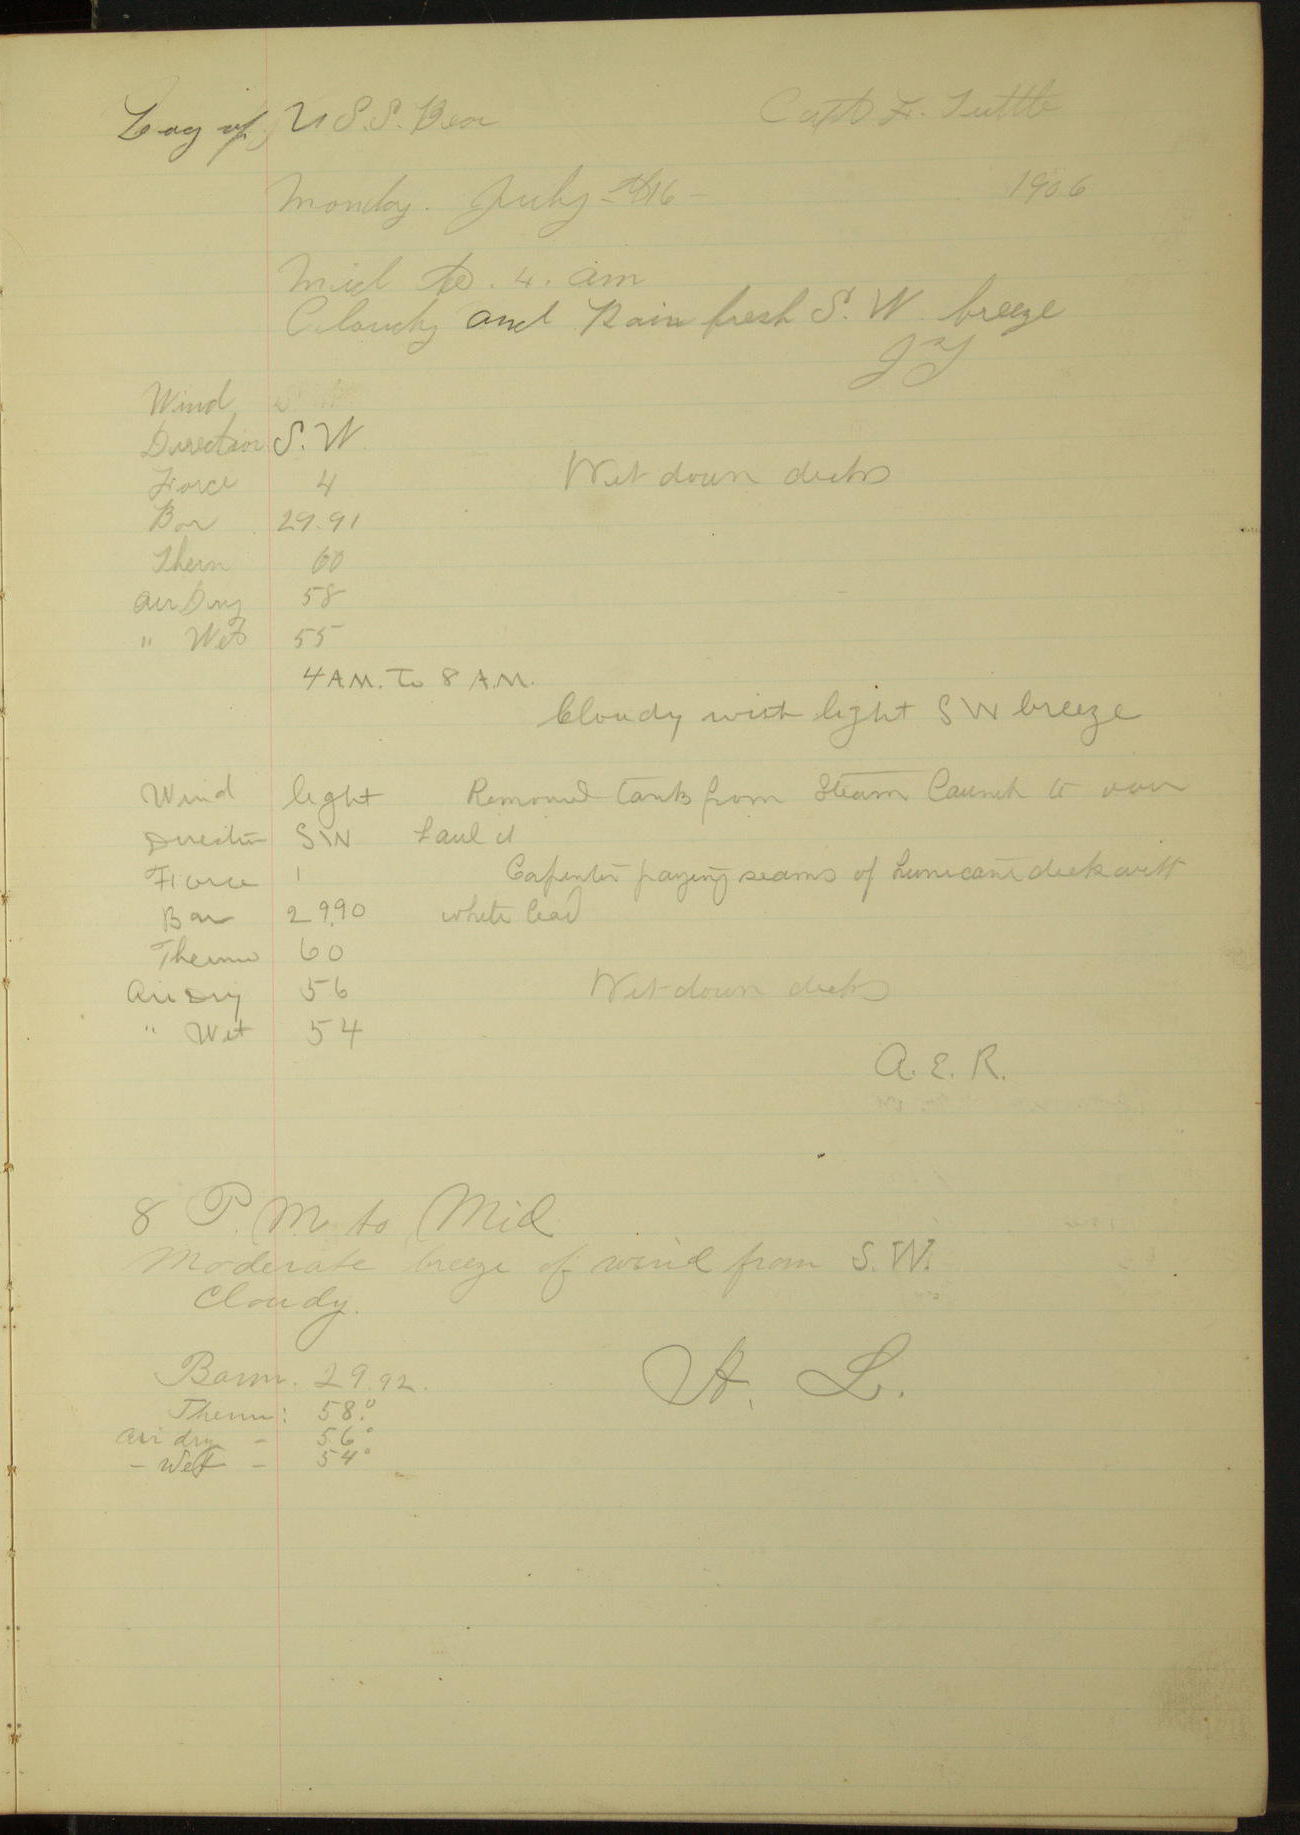 Log of U S. S. Bear Capt. F. Tuttle
Monday. July 16 - 1906
Mid to. 4. am
Cloudy and Rain fresh S. W. breeze
Wind
Direction S. W.
Force 4 Wet down decks
Bar 29.91
Therm 60
Air Dry 58
" Wet 55
4 A.M. To 8 A.M.
Cloudy with light SW breeze
Wind light Removed tank from Steam Launch to over
Direction SW haul it
Force 1 Carpenter paying seams of hurricane deck with
Bar 29.90 white lead
Thermo 60
Air Dry 56 Wet down decks
" Wet 54
A. E. R.
8 P. M. to Mid
Moderate breeze of wind from S. W.
Cloudy.
Barm. 29.92.
H. L.
Therm: 58.°
Air dry - 56°
- Wet - 54°